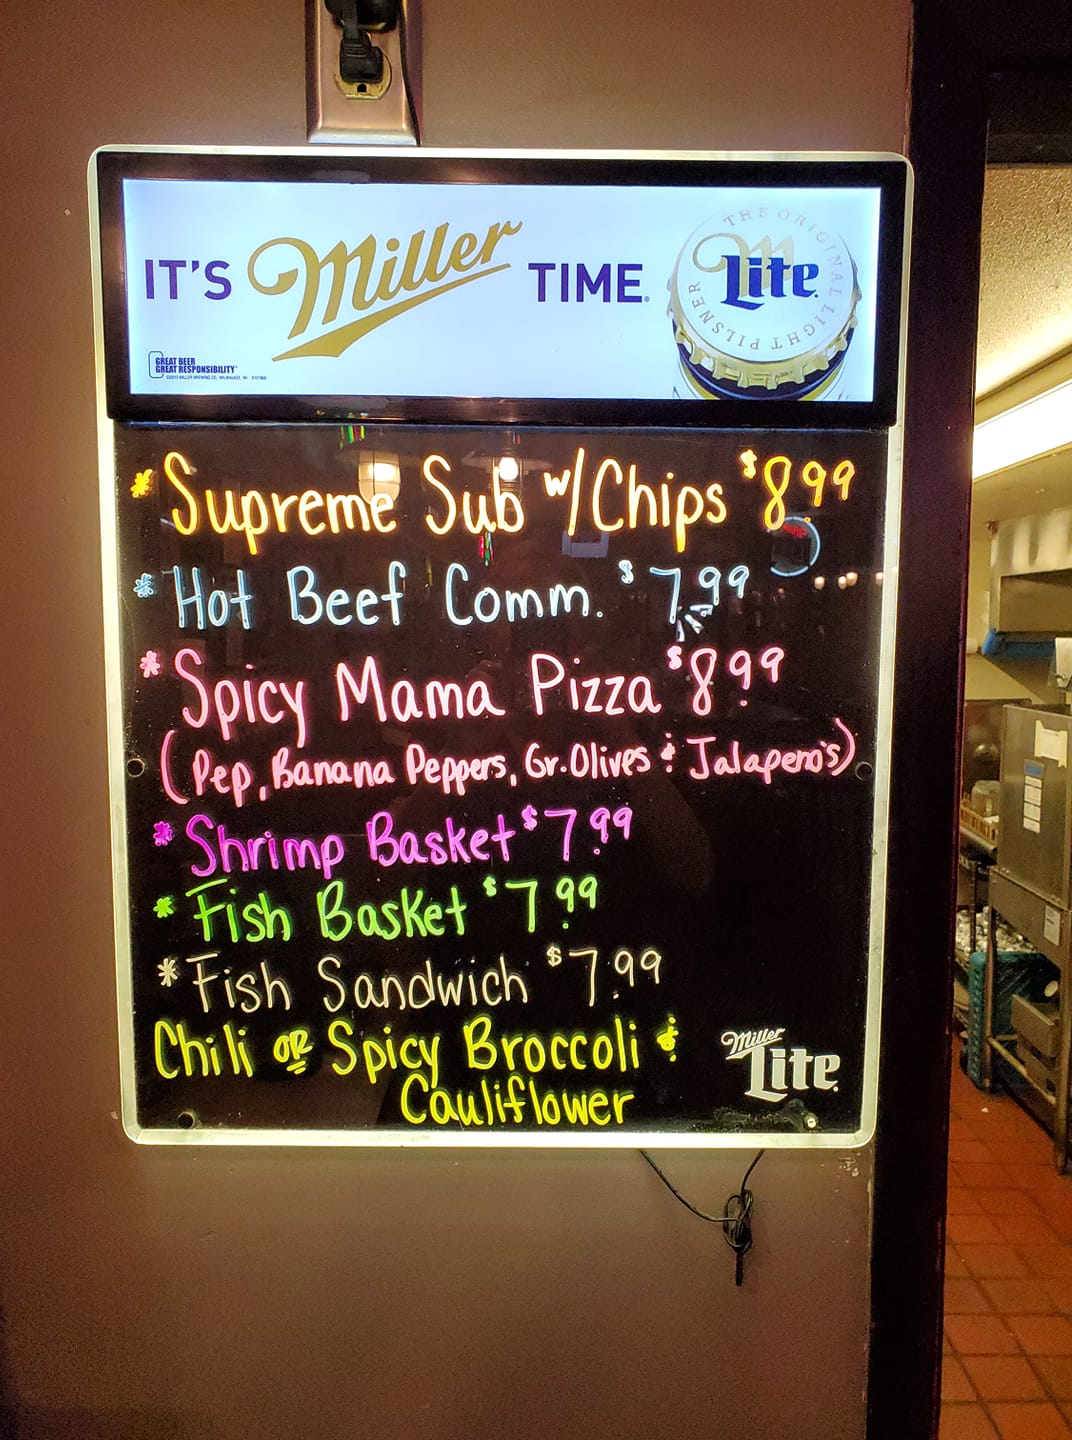 IT'S Miller TIME.
THE ORIGINAL LIGHT PILSNER
Lite
GREAT BEER
GREAT RESPONSIBILITY
* Supreme Sub w/Chips $8.99
* Hot Beef Comm. $7.99
* Spicy Mama Pizza $8.99
(Pep, Banana Peppers, Gr. Olives & Jalapeno's)
* Shrimp Basket $7.99
* Fish Basket $7.99
* Fish Sandwich $7.99
Chili OR Spicy Broccoli &
Cauliflower
Miller
Lite